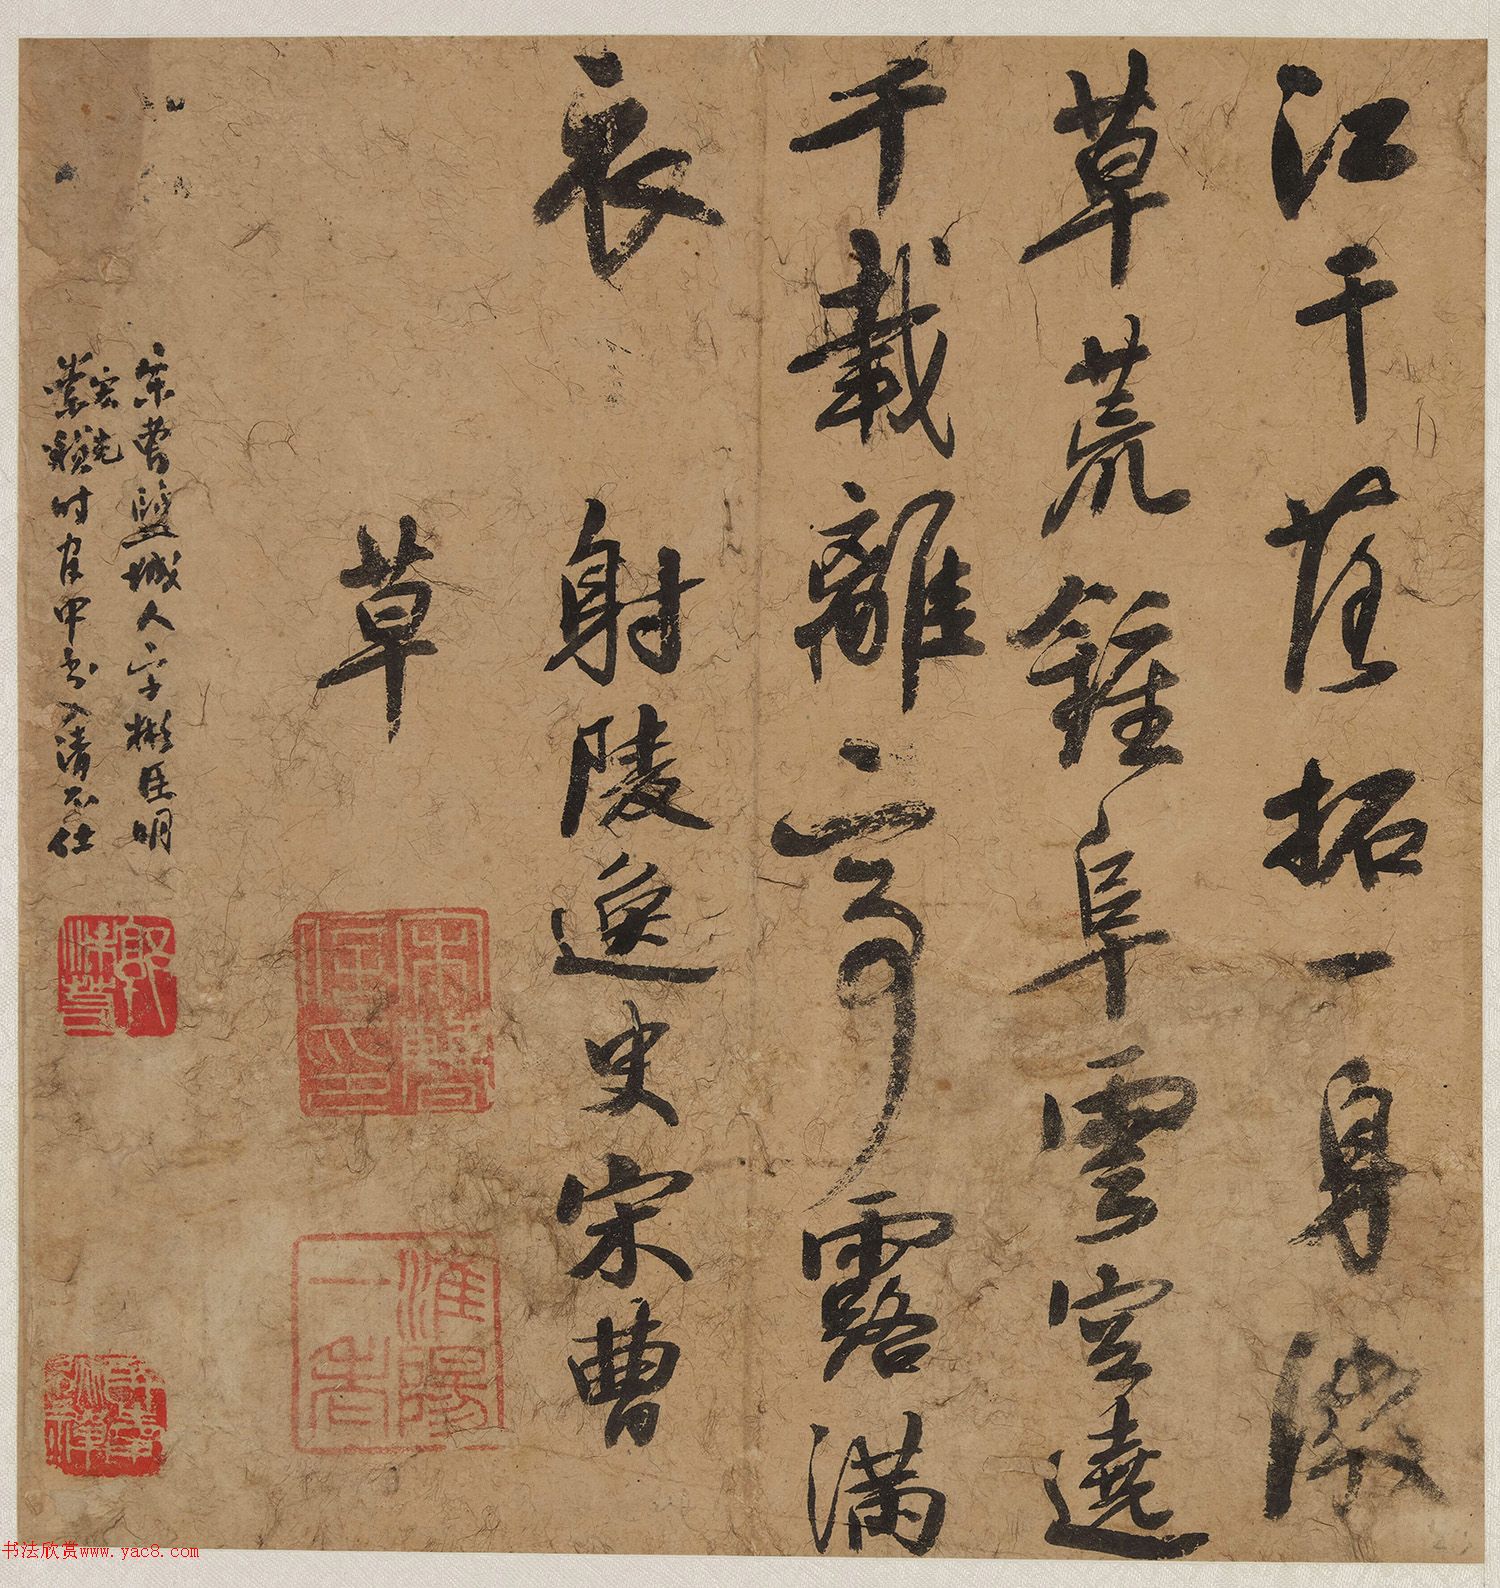 江干落拓一身微
草荒鍾阜雲空遶
千載離亭露滿
衣 射陵逸史宋曹
草
淮陽一老
宋曹鹽城人字彬臣明
宏光
崇禎時官中書入清不仕
书法欣赏www.yac8.com